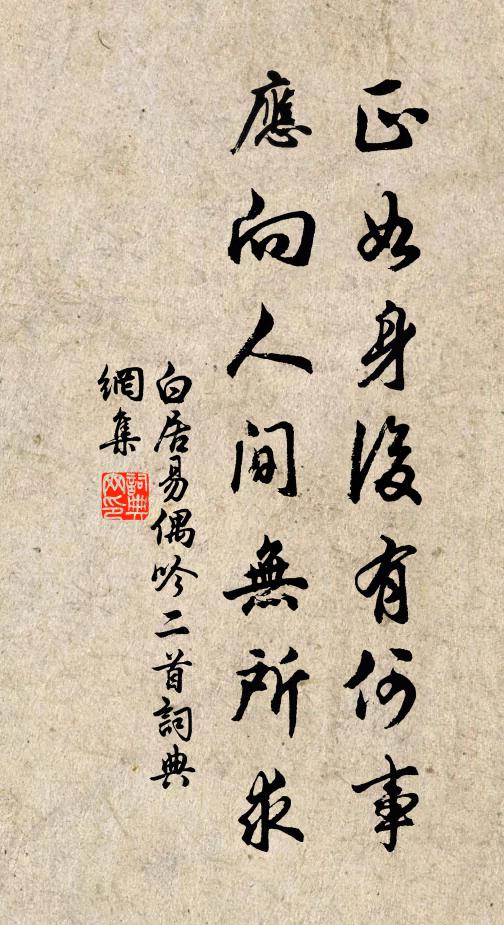 正如身後有何事
應向人間無所求
白居易偶吟二首詞典
網集
詞典
网印